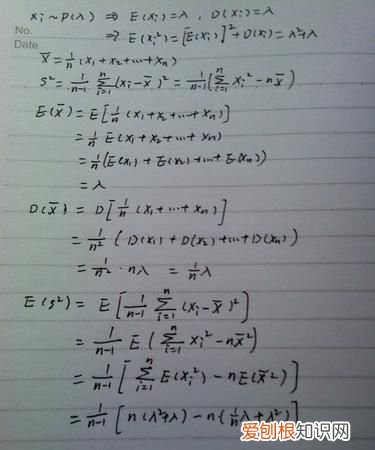 xᵢ ~ P(λ) ⇒ E(xᵢ)=λ , D(xᵢ)=λ
No.
⇒ E(xᵢ²)=[E(xᵢ)]²+D(xᵢ)=λ²+λ
Date
x̄ = 1/n (x₁+x₂+…+xₙ)
S² = 1/(n-1) Σᵢ₌₁ⁿ (xᵢ-x̄)² = 1/(n-1) (Σᵢ₌₁ⁿ xᵢ² - nx̄)
E(x̄) = E[1/n (x₁+x₂+…+xₙ)]
= 1/n E(x₁+x₂+…+xₙ)
= 1/n (E(x₁)+E(x₂)+…+E(xₙ))
= λ
D(x̄) = D[1/n (x₁+…+xₙ)]
= 1/n² (D(x₁)+D(x₂)+…+D(xₙ))
= 1/n² · nλ = 1/n λ
E(S²) = E[1/(n-1) Σᵢ₌₁ⁿ (xᵢ-x̄)²]
= 1/(n-1) E(Σᵢ₌₁ⁿ xᵢ² - nx̄²)
= 1/(n-1) [Σᵢ₌₁ⁿ E(xᵢ²) - nE(x̄²)]
= 1/(n-1) [n(λ²+λ) - n(1/n λ+λ²)]
爱刨根知识网